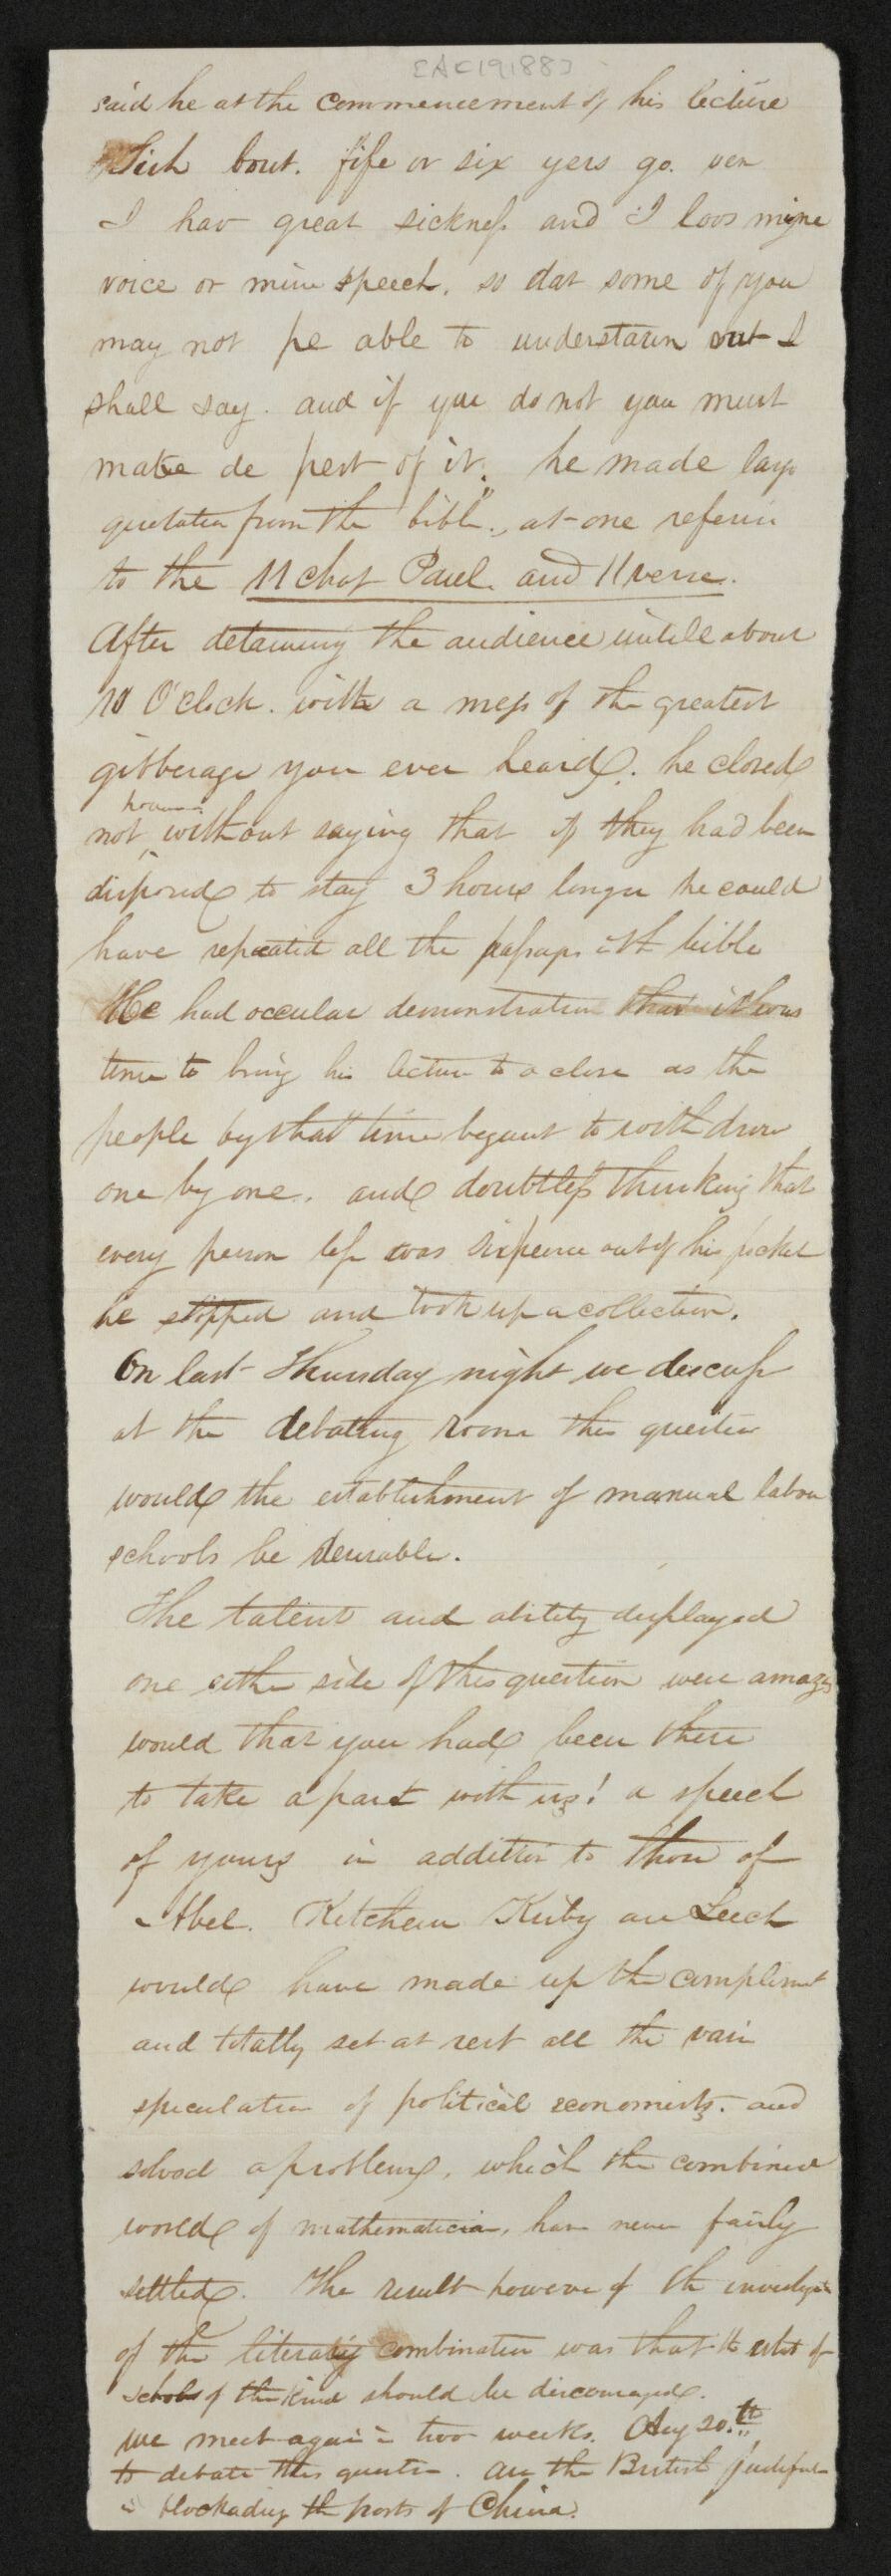 [AC19188]
said he at the commencement of his lecture
Sich bout. fife or six yers go. ven
I hav great sickness and I loos mine
voice or mine speech. so dat some of you
may not pe able to understaun vat I
shall say. and if you do not you must
make de pest of it." he made large
quotation from the bible., at one referin
to the 11 chap Paul. and 11 verse.
After detaining the audience untill about
10 O'clock. with a mess of the greatest
gibberage you ever heard. he closed
however
not without saying that if they had been
disposed to stay 3 hours longer he could
have repeated all the passages in the bible
He had occular demonstration that it was
time to bring his lecture to a close as the
people by that time begun to withdraw
one by one. and doubtless thinking that
every person left was sixpence out of his pocket
he stopped and took up a collection.
On last Thursday night we discuss
at the debating room this question
would the establishment of manual labour
schools be desirable.
The talent and ability displayed
one either side of this question were amazing
would that you had been there
to take a part with us! a speech
of yours in addition to those of
Abel. Ketcham Kirby an Leech
would have made up the compliment
and totally set at rest all the vain
speculation of political economists. and
solved a problem, which the combined
world of mathematician, have never fairly
settled. The result however of the investigation
of the literary combination was that the
schools of this kind should be discouraged.
we meet again in two weeks. Aug 20.th
to debate this question. are the British justified
in blockading the ports of China.